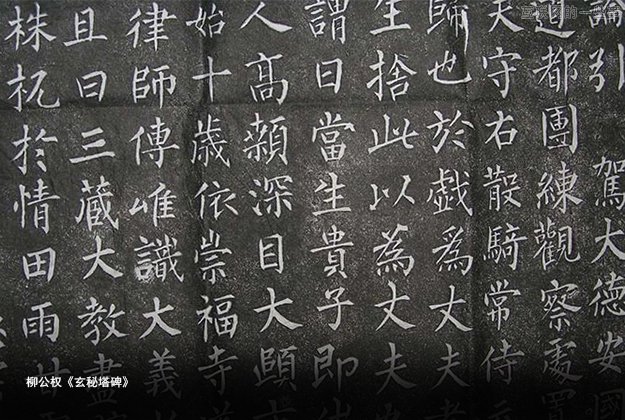 論引 駕大德安國
道都團練觀察處
夫守右散騎常侍
歸也於戲爲丈夫
生捨此以為丈夫
謂曰當生貴子即
人高顙深目大頤
始十歲依崇福寺
律師傳唯識大義
且曰三藏大教盡
株杌於情田雨
柳公权《玄秘塔碑》